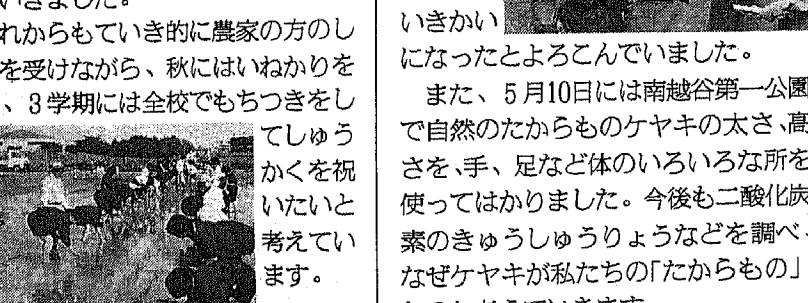 いきました。
れからもていき的に農家の方のし
を受けながら、秋にはいねかりを
、3学期には全校でもちつきをし
てしゅう
かくを祝
いたいと
考えてい
ます。
いきかい
になったとよろこんでいました。
また、5月10日には南越谷第一公園
で自然のたからものケヤキの太さ、高
さを、手、足など体のいろいろな所を
使ってはかりました。今後も二酸化炭
素のきゅうしゅうりょうなどを調べ、
なぜケヤキが私たちの「たからもの」